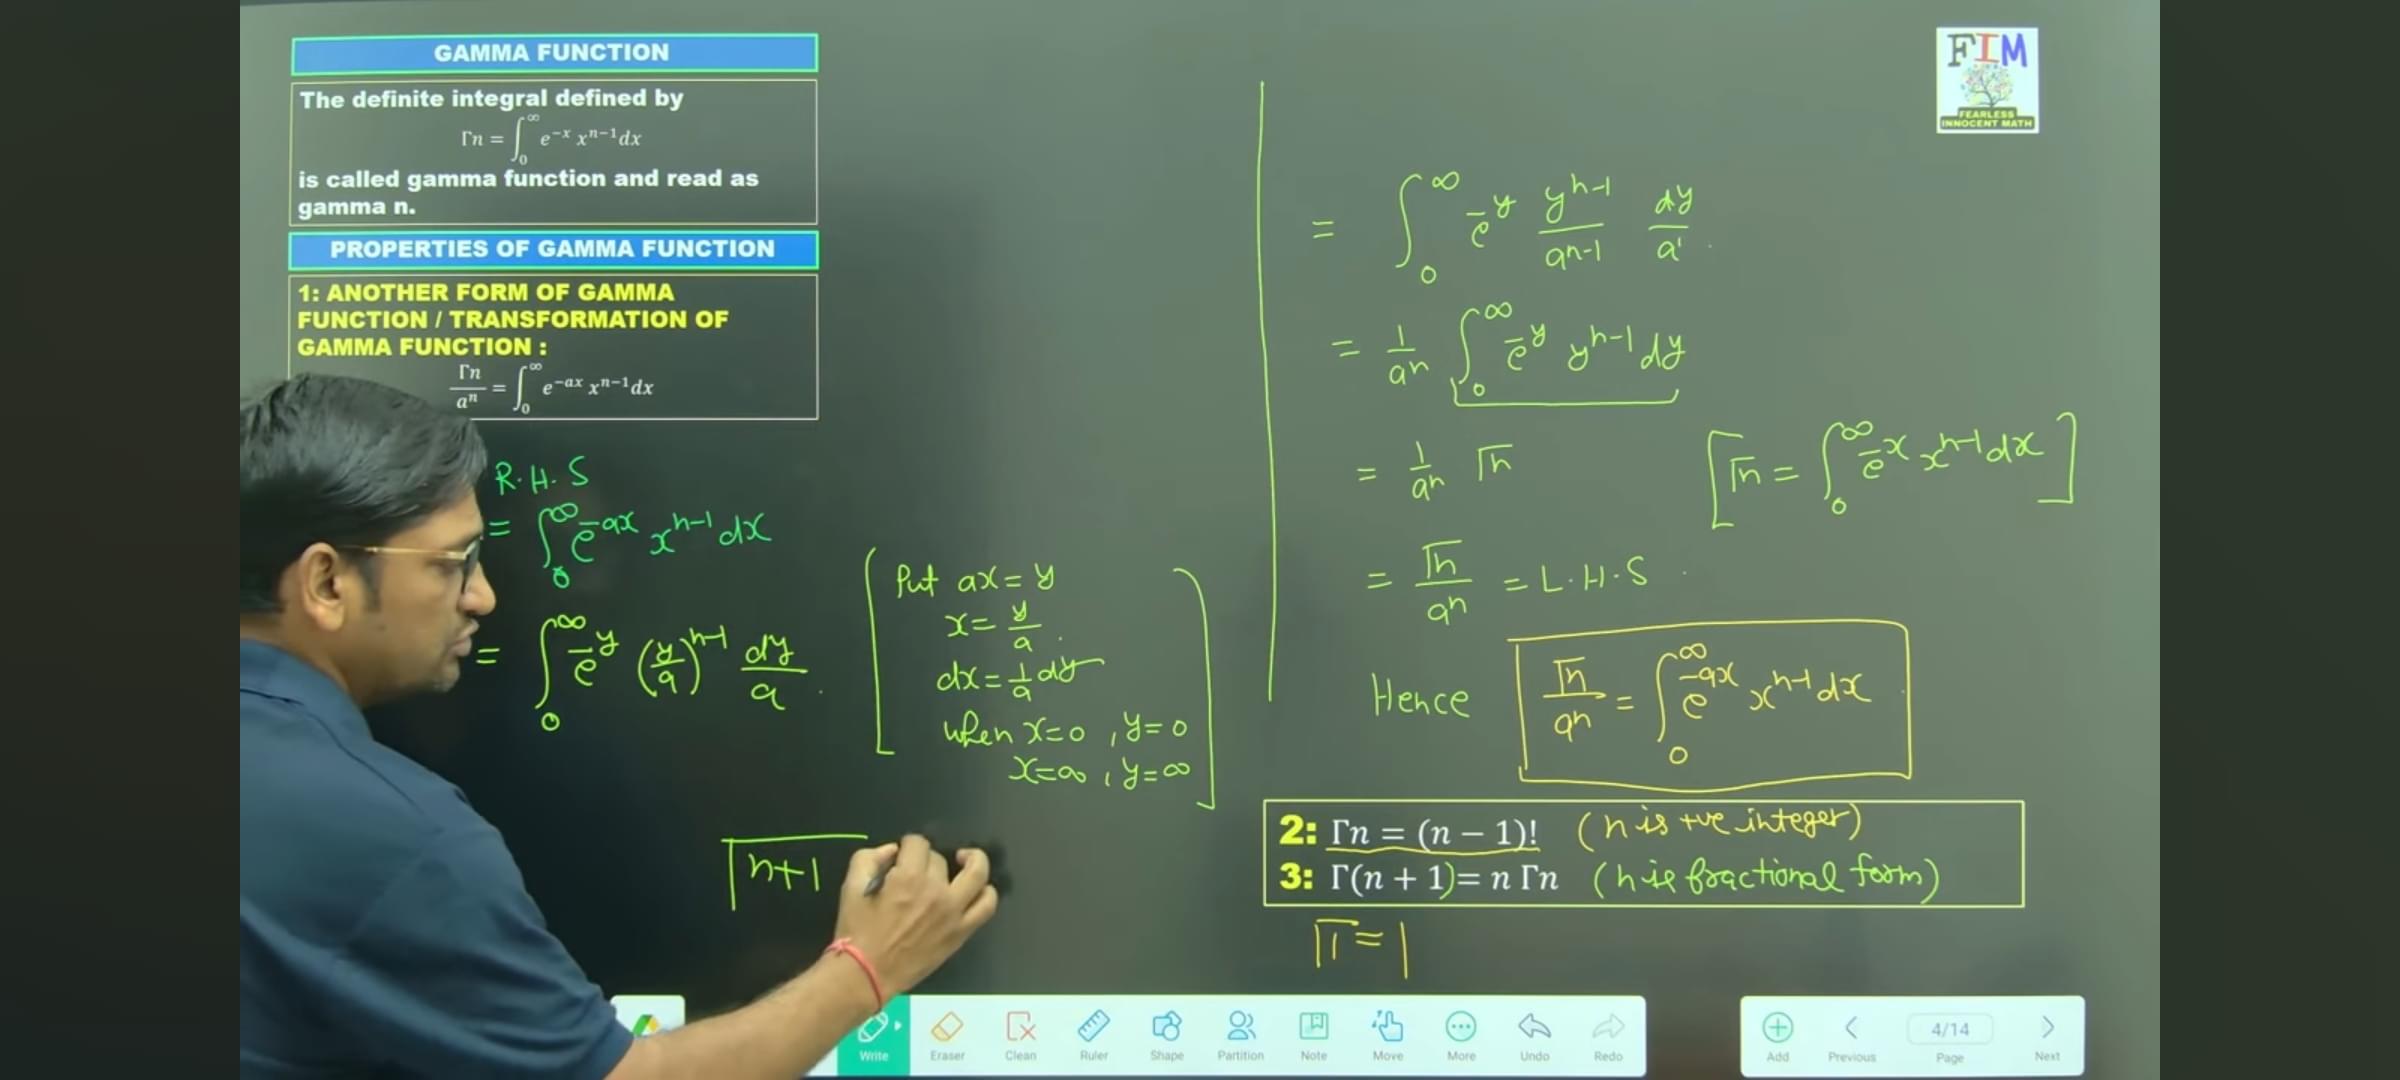 GAMMA FUNCTION
The definite integral defined by
Γn = ∫₀^∞ e^{−x} x^{n−1}dx
is called gamma function and read as
gamma n.
PROPERTIES OF GAMMA FUNCTION
1: ANOTHER FORM OF GAMMA
FUNCTION / TRANSFORMATION OF
GAMMA FUNCTION :
Γn/aⁿ = ∫₀^∞ e^{−ax} x^{n−1}dx
R.H.S
= ∫₀^∞ e^{−ax} x^{n−1} dx
= ∫₀^∞ e^{−y} (y/a)^{n−1} dy/a.
Put ax = y
x = y/a.
dx = 1/a dy
when x=0, y=0
x=∞, y=∞
Γn+1
FIM
FEARLESS
INNOCENT MATH
= ∫₀^∞ e^{−y} y^{n−1}/a^{n−1} dy/a¹.
= 1/aⁿ ∫₀^∞ e^{−y} y^{n−1} dy
= 1/aⁿ Γn [Γn = ∫₀^∞ e^{−x} x^{n−1} dx]
= Γn/aⁿ = L.H.S.
Hence Γn/aⁿ = ∫₀^∞ e^{−ax} x^{n−1} dx
2: Γn = (n − 1)! (n is +ve integer)
3: Γ(n + 1)= n Γn (n is fractional form)
Γ1 = 1
Write
Eraser
Clean
Ruler
Shape
Partition
Note
Move
More
Undo
Redo
Add
Previous
4/14
Page
Next